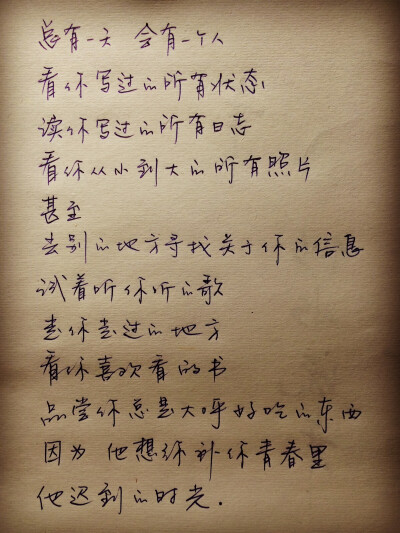 总有一天 会有一个人
看你写过的所有状态
读你写过的所有日志
看你从小到大的所有照片
甚至
去别的地方寻找关于你的信息
试着听你听的歌
走你走过的地方
看你喜欢看的书
品尝你总是大呼好吃的东西
因为 他想弥补你青春里
他迟到的时光.